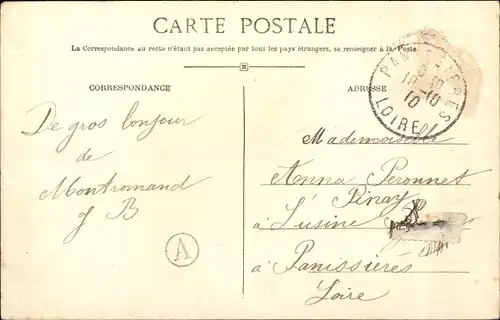 CARTE POSTALE
La Correspondance au recto n'étant pas acceptée par tous les pays étrangers, se renseigner à la Poste
CORRESPONDANCE
ADRESSE
De gros bonjour
de
Montromand
J B
A
LOIRE
Mademoiselle
Anna Peronnet
Pinay
à L'usine
à Panissières
Loire